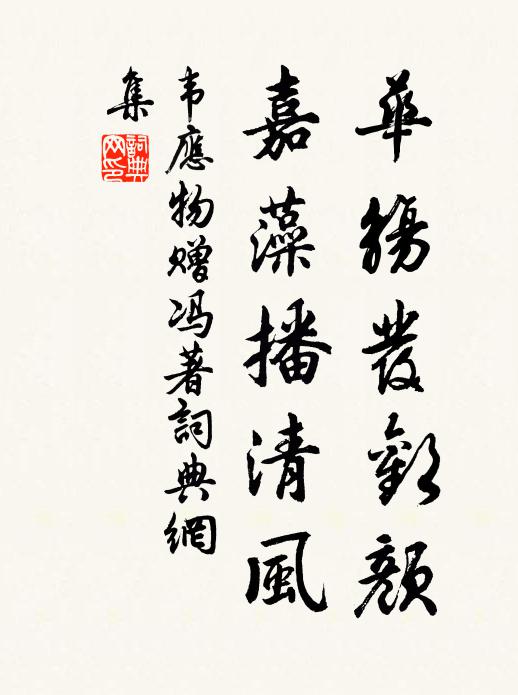 華觴發歡顏
嘉藻播清風
韦應物贈冯著詞典網
集
詞典网印